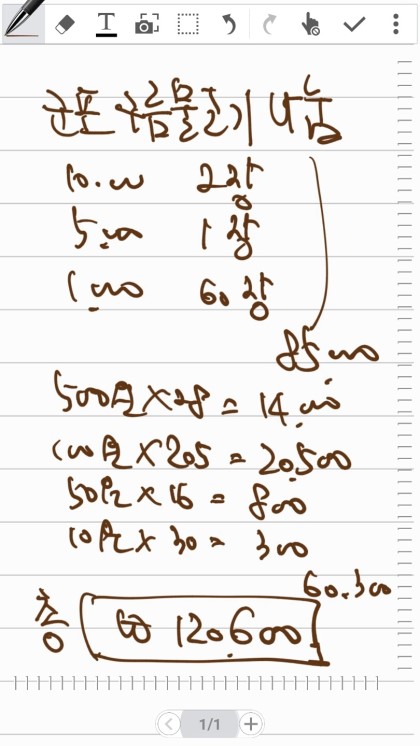 T
군포 구름물군기 나눔
10.000 2장
5.000 1장
1.000 60장
85.000
500원 × 28 = 14.000
100원 × 205 = 20.500
50원 × 16 = 800
10원 × 30 = 300
60.300
총 ₩ 120.600
1/1